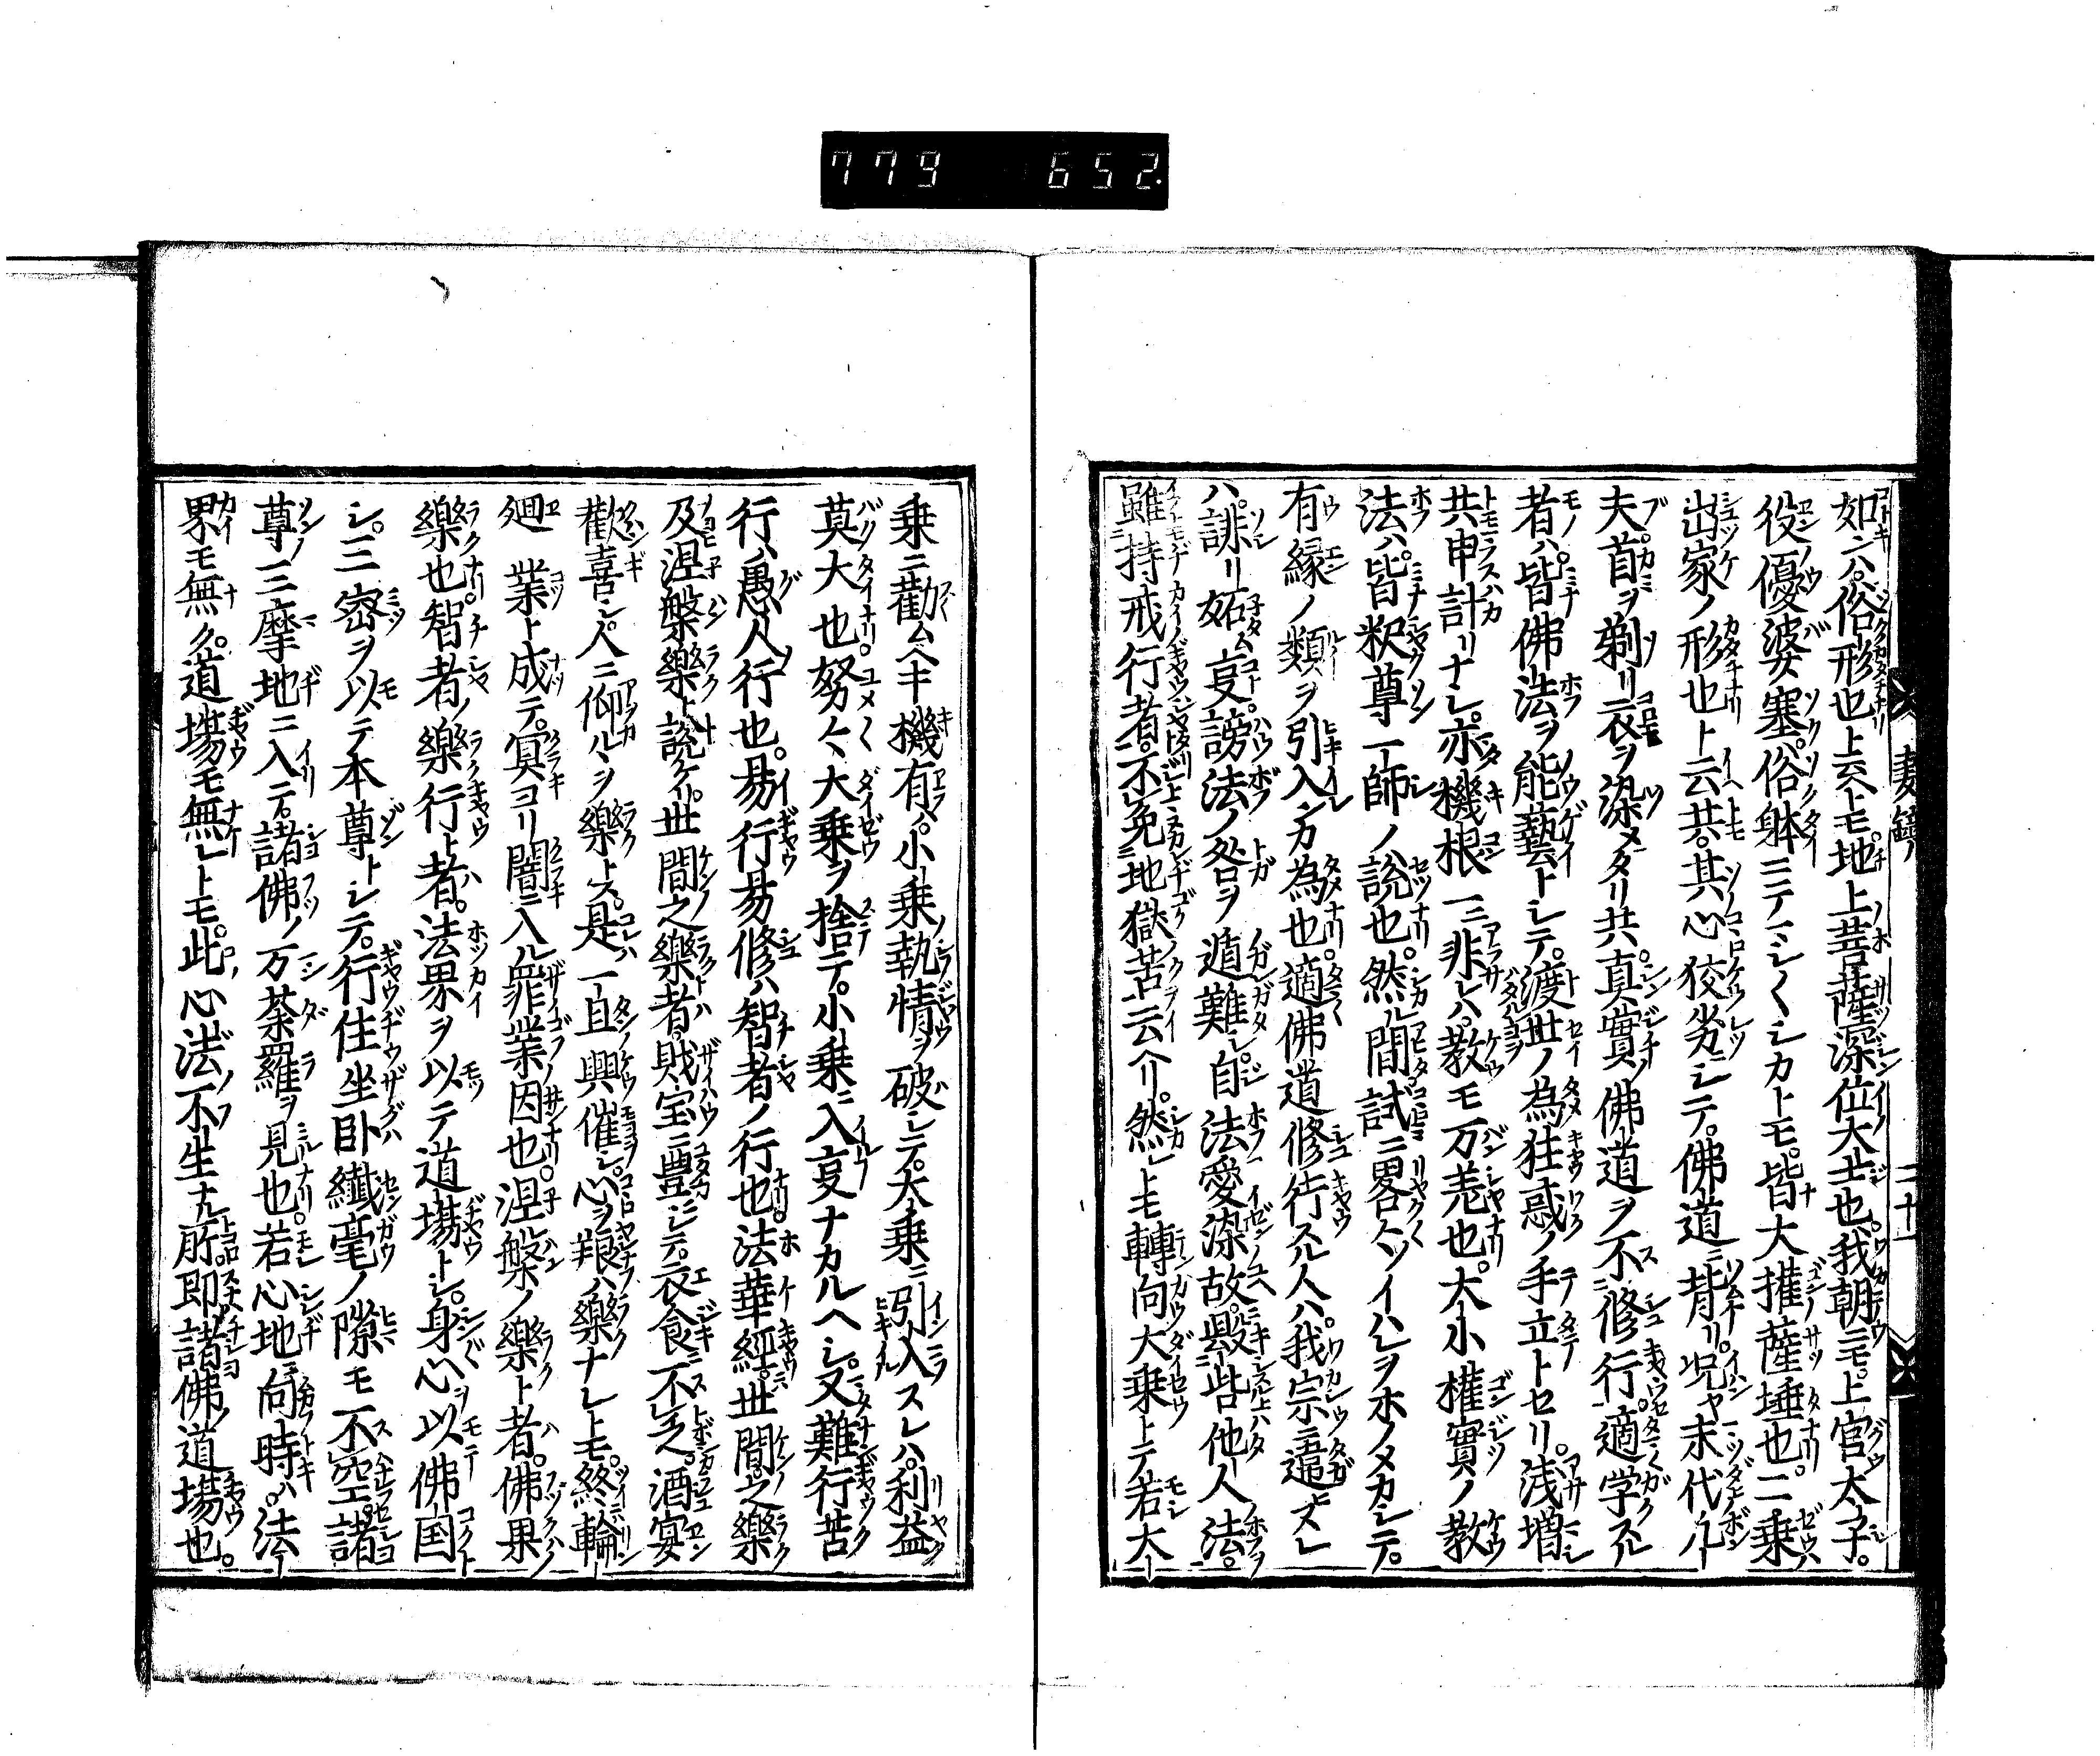 779 652
妻鏡
二十一
如ンハ。俗形也ト云ヘトモ。地上菩薩深位大士也。我朝ニモ。上宮太子。
役優婆塞。俗躰ニテマシ〱シカトモ。皆大權薩埵也。二乗ハ
出家ノ形也ト云共。其心狡劣ニシテ。佛道ニ背リ。况ヤ末代ノ凡
夫。首ヲ剃リ衣ヲ染メタリ共。真實佛道ヲ不修行。適学スル
者ハ。皆佛法ヲ能藝トシテ。渡世ノ為狂惑ノ手立トセリ。浅増
共申計リナシ。亦機根一ニ非レハ。教モ万差也。大小權實ノ教
法ハ。皆釈尊一師ノ說也。然ル間試ニ畧々ソイハレヲホノメカシテ。
有縁ノ類ヲ引入ンカ為也。適佛道修行スル人ハ。我宗ニ違ヒヌレ
ハ。誹リ妬ム事。謗法ノ咎ヲ遁難シ。自法愛染故。毀呰他人法。
雖持戒行者。不免地獄苦云介リ。然レトモ轉向大乗トテ若大
乗ニ勸ムヘキ機有ハ。小乗執情ヲ破シテ。大乗ニ引入スレハ。利益
莫大也。努々大乗ヲ捨テ。小乗ニ入事ナカルヘシ。又難行苦
行ハ愚人行也。易行易修ハ智者ノ行也。法華經。世間之樂
及涅槃樂ト說ケリ。世間之樂者。賎宝ニ豊ニシテ。衣食不乏。酒宴
歡喜シ。人ニ仰ルヲ樂トス。是一旦興催シ。心ヲ粮ハ樂ナレトモ。終輪
廻業ト成テ。冥ヨリ闇ニ入ル罪業因也。涅槃ノ樂ト者。佛果ノ
樂也。智者ノ樂行ト者。法界ヲ以テ道場トシ。身心ヲ以佛国ト
シ。三密ヲ以テ本尊トシテ。行住坐卧纎毫ノ隙モ不空。諸
尊ノ三摩地ニ入テ。諸佛ノ万荼羅ヲ見也。若心地ニ向時ハ。法
界モ無ク。道場モ無レトモ。此心法不生ナル所即諸佛ノ道場也。